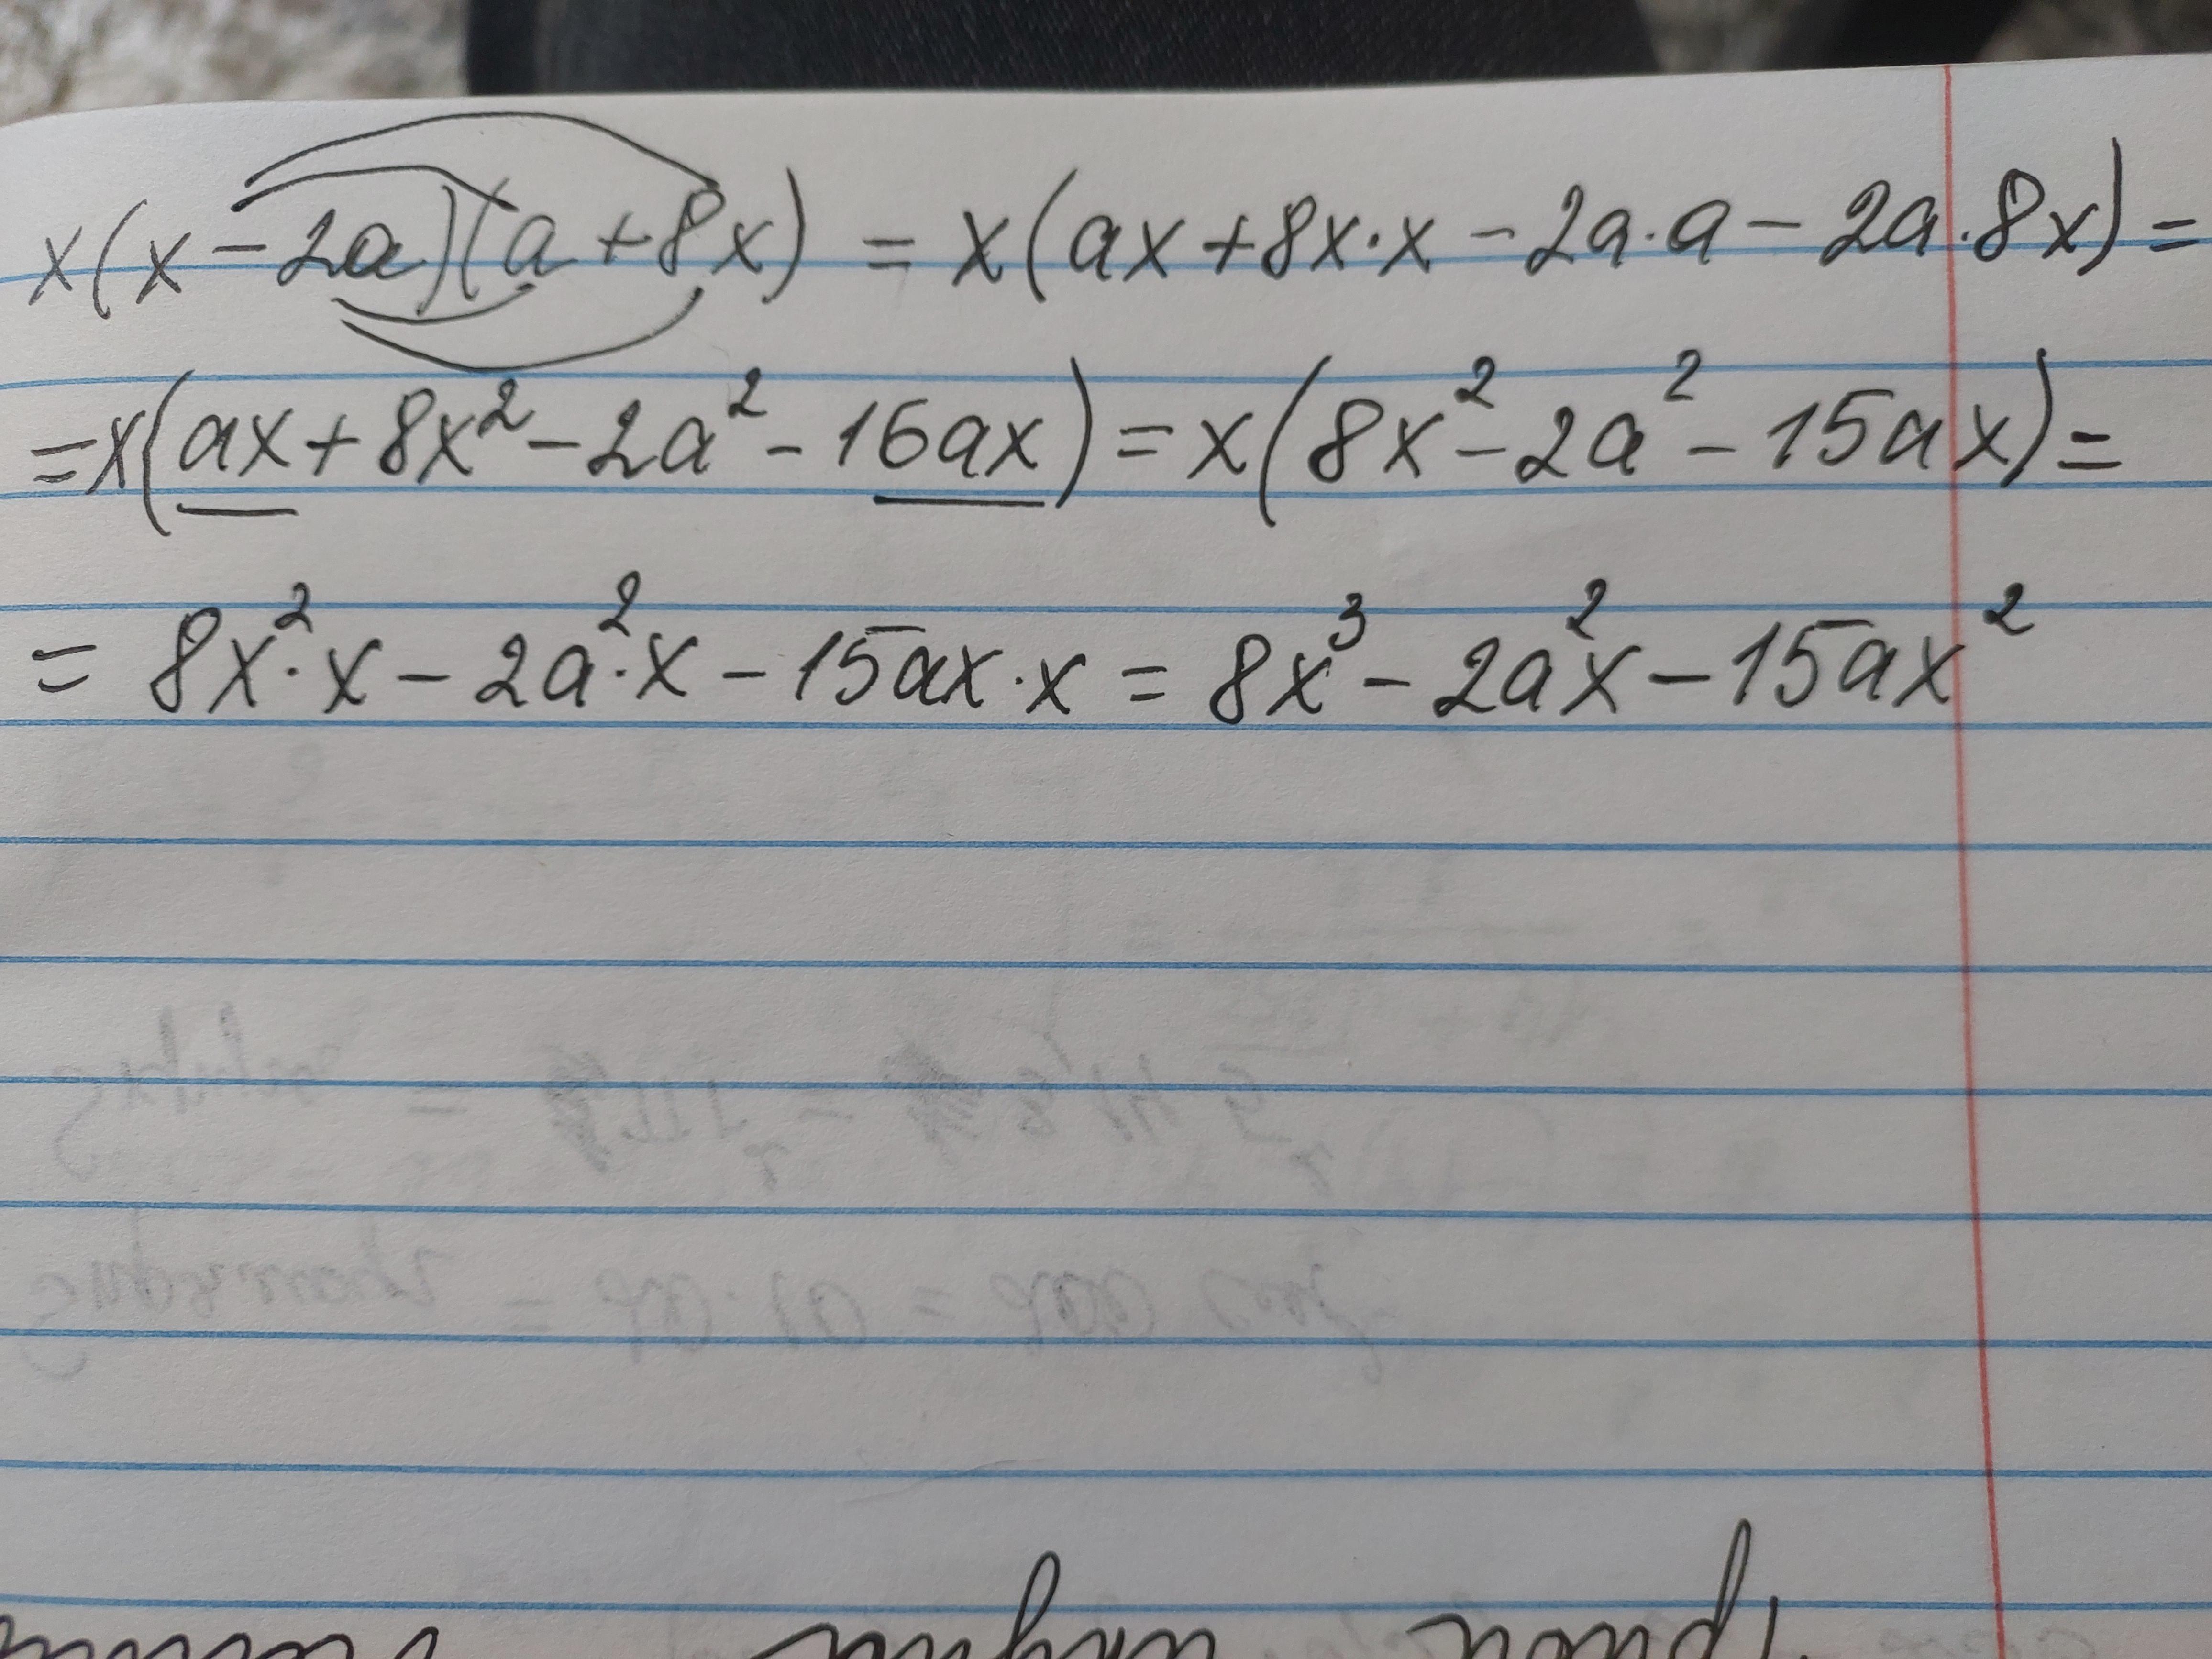 x(x-2a)(a+8x) = x(ax+8x·x-2a·a-2a·8x)=
=x(ax+8x²-2a²-16ax)=x(8x²-2a²-15ax)=
= 8x²·x-2a²·x-15ax·x = 8x³-2a²x-15ax²